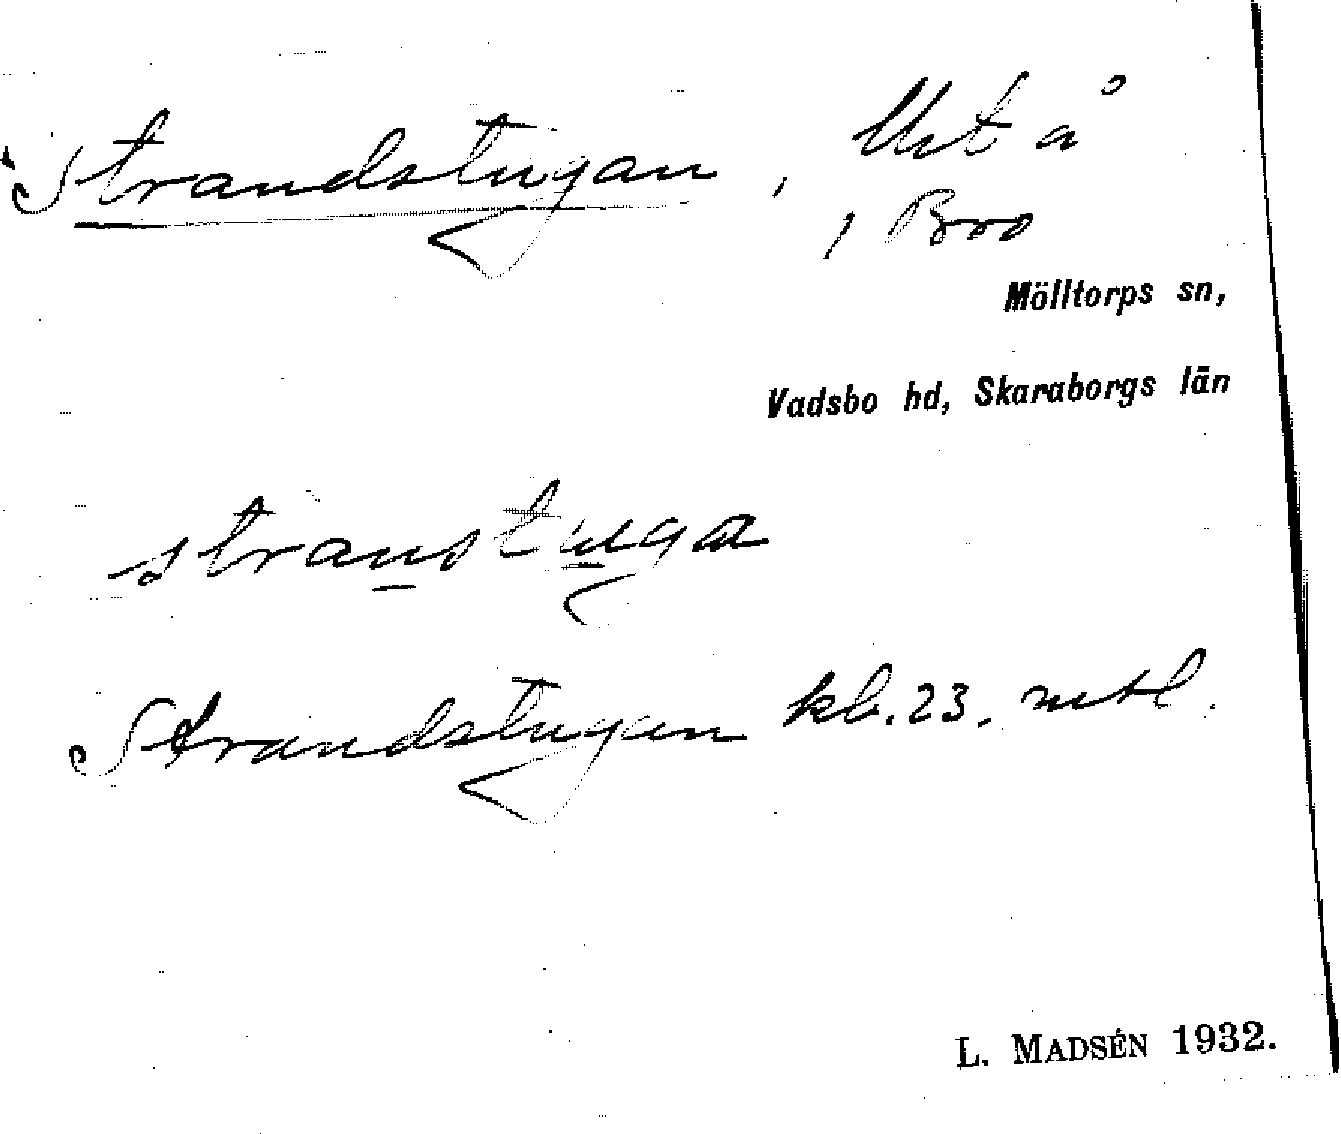 Strandstugan, Uht å
, Broo
Mölltorps sn,
Vadsbo hd, Skaraborgs län
stranstuga
Strandstugan kb. 23. mtl.
L. MADSÉN 1932.